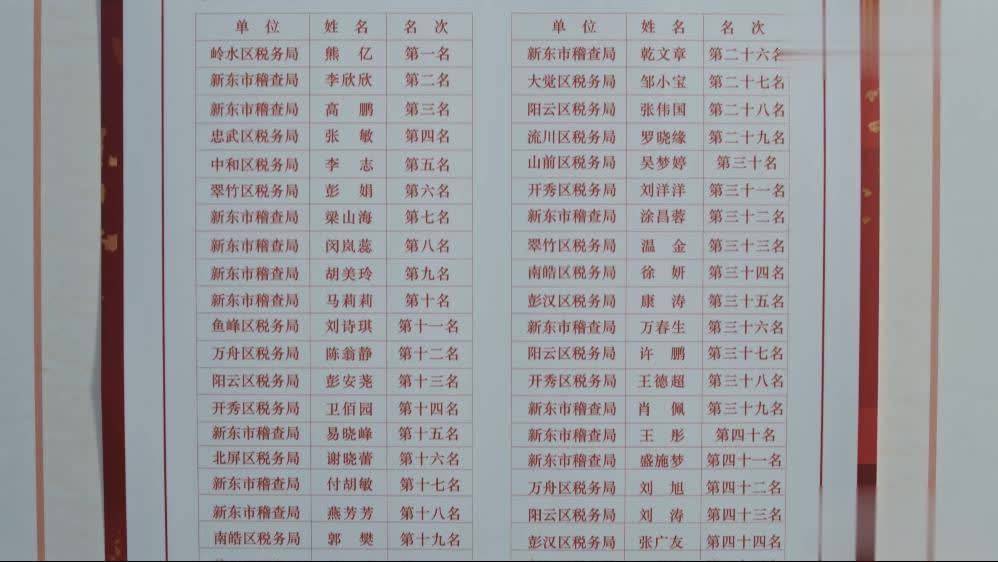 单 位 姓 名 名 次
岭水区税务局 熊 亿 第一名
新东市稽查局 李欣欣 第二名
新东市稽查局 高 鹏 第三名
忠武区税务局 张 敏 第四名
中和区税务局 李 志 第五名
翠竹区税务局 彭 娟 第六名
新东市稽查局 梁山海 第七名
新东市稽查局 闵岚蕊 第八名
新东市稽查局 胡美玲 第九名
新东市稽查局 马莉莉 第十名
鱼峰区税务局 刘诗琪 第十一名
万舟区税务局 陈翁静 第十二名
阳云区税务局 彭安尧 第十三名
开秀区税务局 卫佰园 第十四名
新东市稽查局 易晓峰 第十五名
北屏区税务局 谢晓蕾 第十六名
新东市稽查局 付胡敏 第十七名
新东市稽查局 燕芳芳 第十八名
南皓区税务局 郭 樊 第十九名
单 位 姓 名 名 次
新东市稽查局 乾文章 第二十六名
大觉区税务局 邹小宝 第二十七名
阳云区税务局 张伟国 第二十八名
流川区税务局 罗晓缘 第二十九名
山前区税务局 吴梦婷 第三十名
开秀区税务局 刘洋洋 第三十一名
新东市稽查局 涂昌蓉 第三十二名
翠竹区税务局 温 金 第三十三名
南皓区税务局 徐 妍 第三十四名
彭汉区税务局 康 涛 第三十五名
新东市稽查局 万春生 第三十六名
阳云区税务局 许 鹏 第三十七名
开秀区税务局 王德超 第三十八名
新东市稽查局 肖 佩 第三十九名
新东市稽查局 王 彤 第四十名
新东市稽查局 盛施梦 第四十一名
万舟区税务局 刘 旭 第四十二名
阳云区税务局 刘 涛 第四十三名
彭汉区税务局 张广友 第四十四名